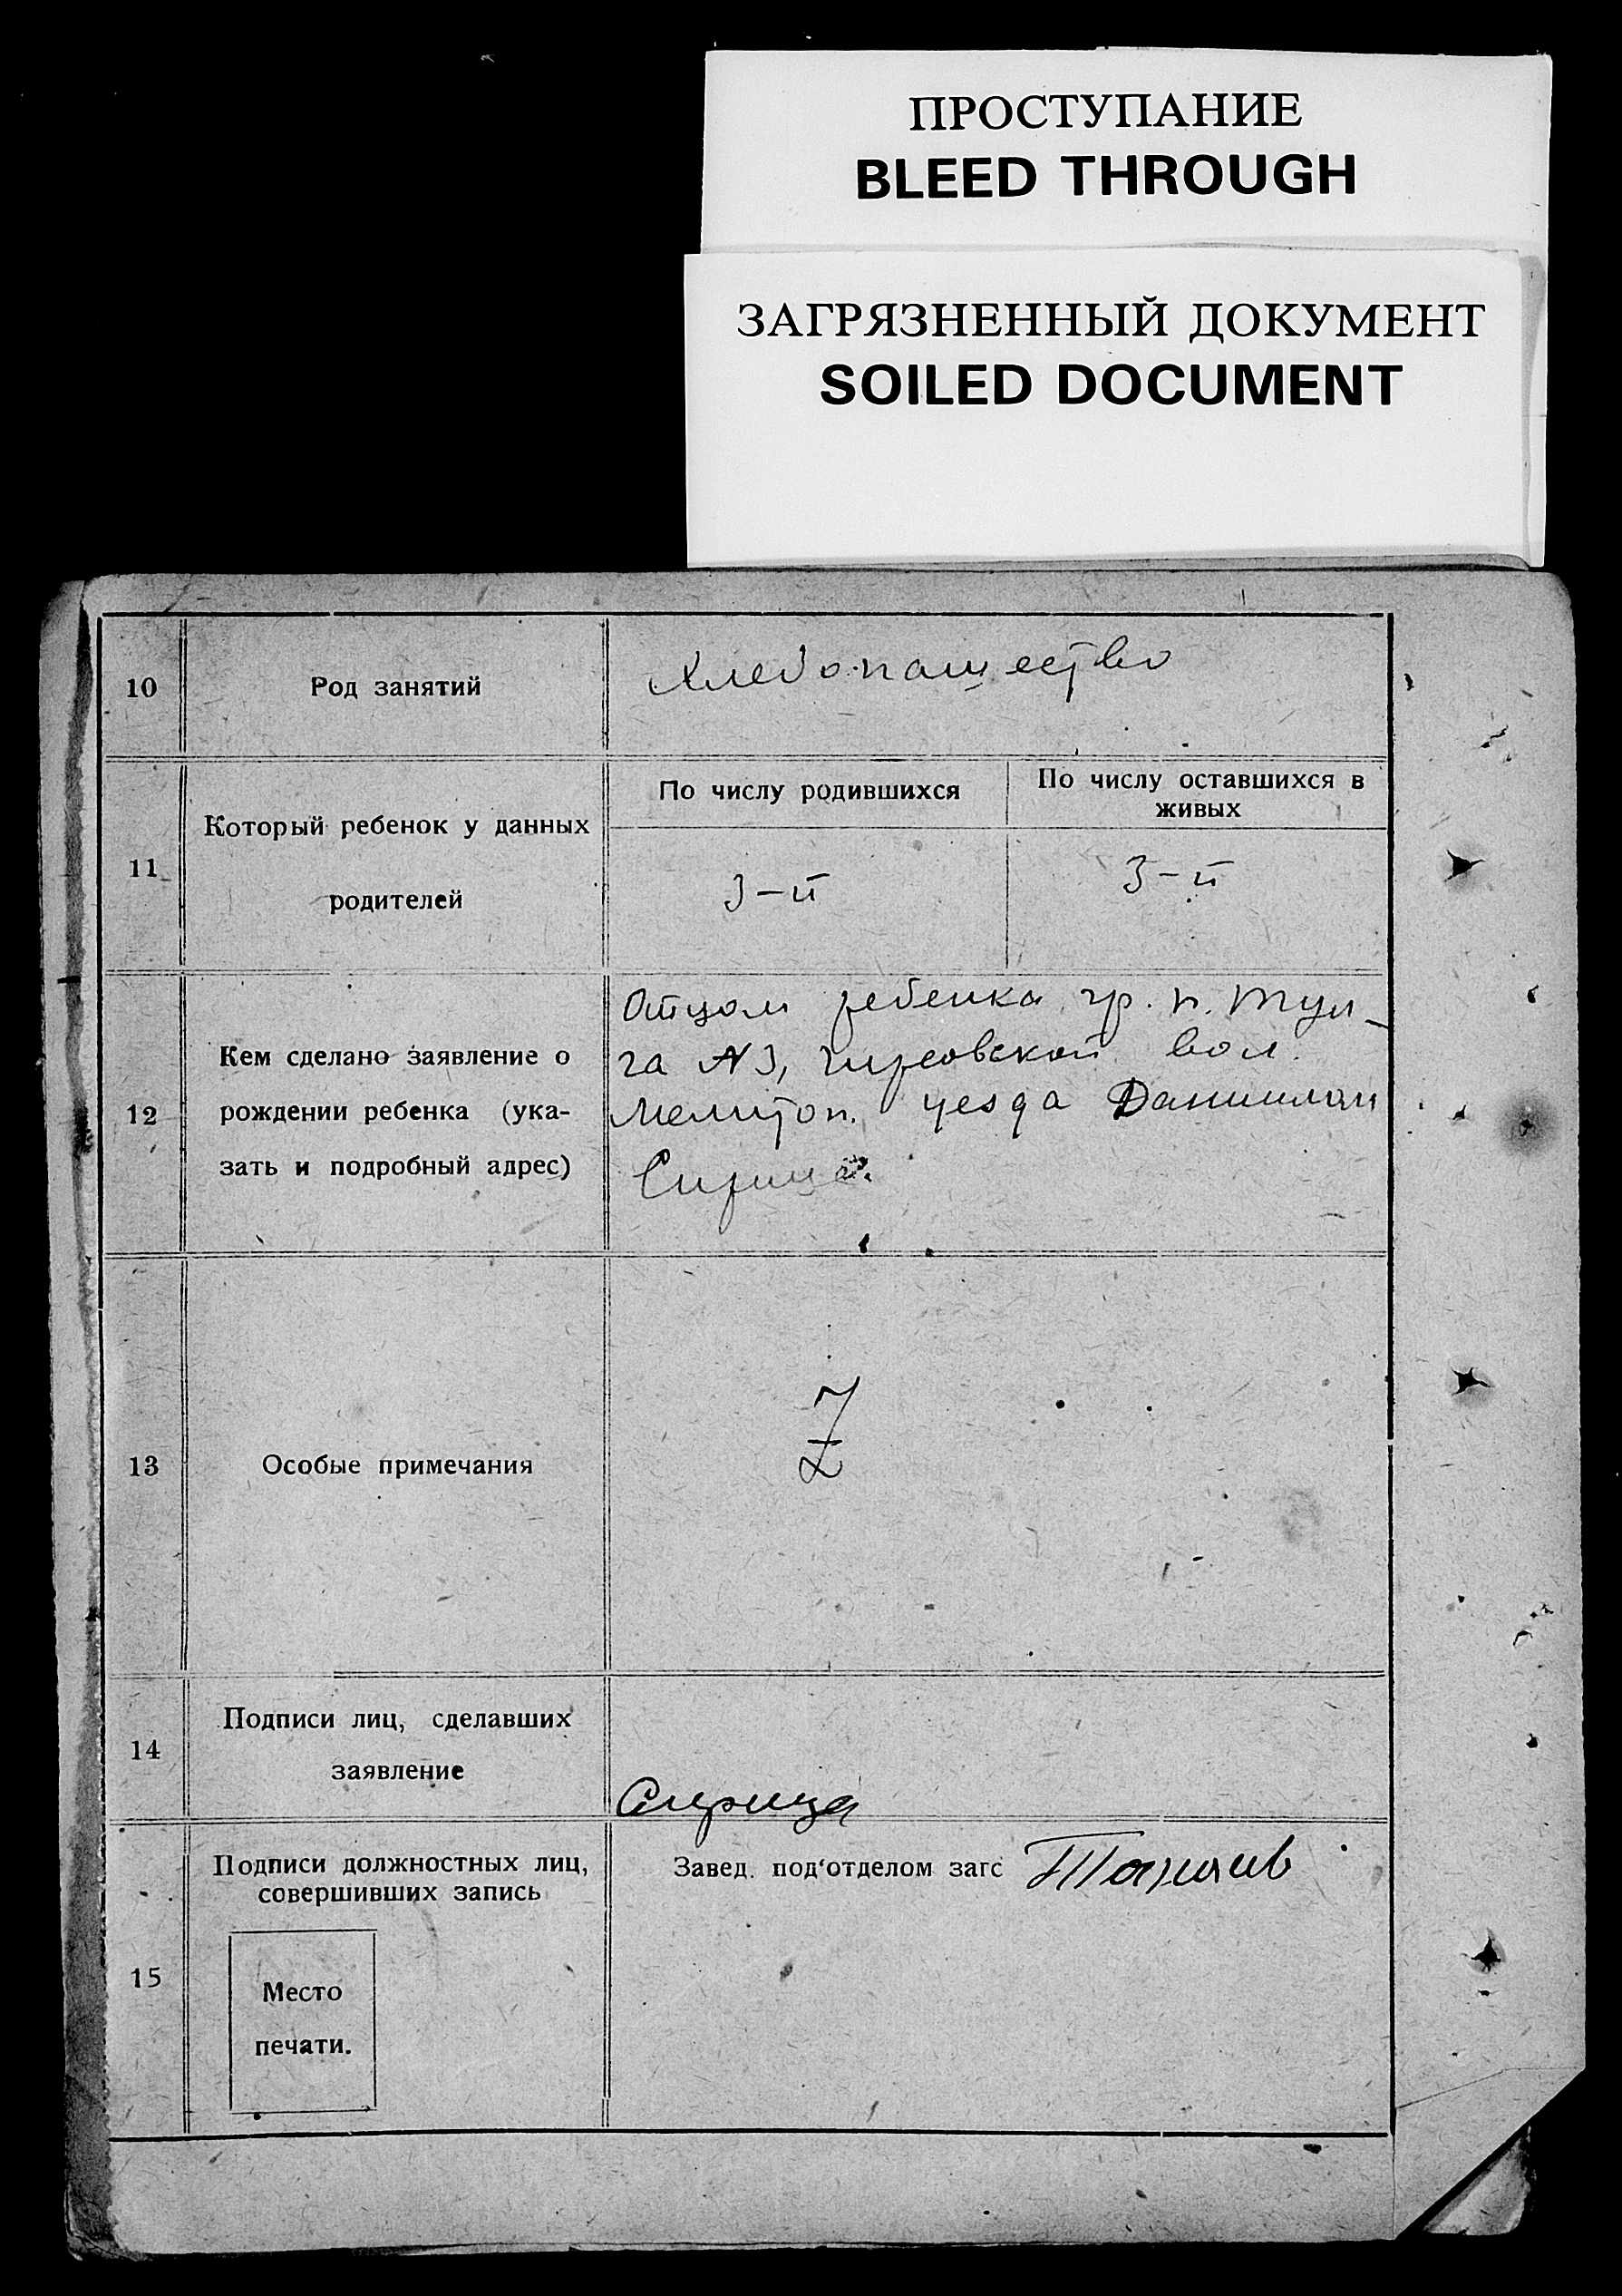 ПРОСТУПАНИЕ
BLEED THROUGH
ЗАГРЯЗНЕННЫЙ ДОКУМЕНТ
SOILED DOCUMENT
10 Род занятий Хлебопашество
11 Который ребенок у данных родителей
По числу родившихся
По числу оставшихся в
живых
3-й 3-й
12 Кем сделано заявление о
рождении ребенка (ука-
зать и подробный адрес)
Отцом ребенка гр. п.
га №3, вол.
Мелитоп. уезда Даниилом
Сирица.
13 Особые примечания
Z
14 Подписи лиц, сделавших
заявление
Сирица
15 Подписи должностных лиц,
совершивших запись
Завед. под'отделом загс
Место
печати.